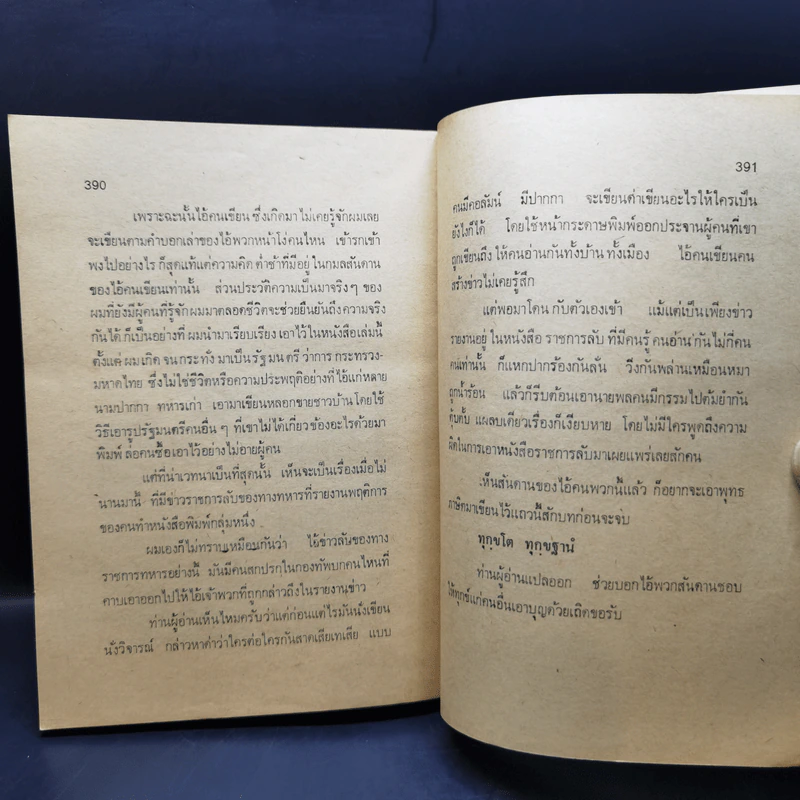 390
เพราะฉะนั้นไอ้คนเขียน ซึ่งเกิดมาไม่เคยรู้จักผมเลย
จะเขียนตามคำบอกเล่าของไอ้พวกหน้าโง่คนไหน เข้ารกเข้า
พงไปอย่างไร ก็สุดแท้แต่ความคิด ต่ำช้าที่มีอยู่ ในกมลสันดาน
ของไอ้คนเขียนเท่านั้น ส่วนประวัติความเป็นมาจริง ๆ ของ
ผมที่ยังมีผู้คนที่รู้จักผมมาตลอดชีวิตจะช่วยยืนยันถึงความจริง
กันได้ ก็เป็นอย่างที่ ผมนำมาเรียบเรียงเอาไว้ในหนังสือเล่มนี้
ตั้งแต่ ผมเกิด จนกระทั่ง มาเป็นรัฐมนตรีว่าการ กระทรวง-
มหาดไทย ซึ่งไม่ใช่ชีวิตหรือความประพฤติอย่างที่ไอ้แก่หลาย
นามปากกา ทหารเก่า เอามาเขียนหลอกขายชาวบ้าน โดยใช้
วิธีเอารูปรัฐมนตรีคนอื่น ๆ ที่เขาไม่ได้เกี่ยวข้องอะไรด้วยมา
พิมพ์ ล่อคนซื้อเอาไว้อย่างไม่อายผู้คน
แต่ที่น่าเวทนาเป็นที่สุดนั้น เห็นจะเป็นเรื่องเมื่อไม่
นานมานี้ ที่มีข่าวราชการลับของทางทหารที่รายงานพฤติการ
ของคนทำหนังสือพิมพ์กลุ่มหนึ่ง
ผมเองก็ไม่ทราบเหมือนกันว่า ไอ้ข่าวลับของทาง
ราชการทหารอย่างนี้ มันมีคนสกปรกในกองทัพบกคนไหนที่
คาบเอาออกไปให้ไอ้เจ้าพวกที่ถูกกล่าวถึงในรายงานข่าว
ท่านผู้อ่านเห็นไหมครับว่าแต่ก่อนแต่ไรมันนั่งเขียน
นั่งวิจารณ์ กล่าวหาด่าว่าใครต่อใครกันสาดเสียเทเสีย แบบ
391
คนมีคอลัมน์ มีปากกา จะเขียนด่าเขียนอะไรให้ใครเป็น
ยังไงก็ได้ โดยใช้หน้ากระดาษพิมพ์ออกประจานผู้คนที่เขา
ถูกเขียนถึง ให้คนอ่านกันทั้งบ้าน ทั้งเมือง ไอ้คนเขียนคน
สร้างข่าวไม่เคยรู้สึก
แต่พอมาโดน กับตัวเองเข้า แม้แต่เป็นเพียงข่าว
รายงานอยู่ ในหนังสือ ราชการลับ ที่มีคนรู้ คนอ่าน กันไม่กี่คน
คนเท่านั้น ก็แหกปากร้องกันลั่น วิ่งกันพล่านเหมือนหมา
ถูกน้ำร้อน แล้วก็รีบต้อนเอานายพลคนมีกรรมไปต้มยำกัน
คุ้บคั้บ แผลบเดียวเรื่องก็เงียบหาย โดยไม่มีใครพูดถึงความ
ผิดในการเอาหนังสือราชการลับมาเผยแพร่เลยสักคน
เห็นสันดานของไอ้คนพวกนี้แล้ว ก็อยากจะเอาพุทธ
ภาษิตมาเขียนไว้แถวนี้สักบทก่อนจะจบ
ทุกฺขโต ทุกฺขฐานํ
ท่านผู้อ่านแปลออก ช่วยบอกไอ้พวกสันดานชอบ
ให้ทุกข์แก่คนอื่นเอาบุญด้วยเถิดขอรับ